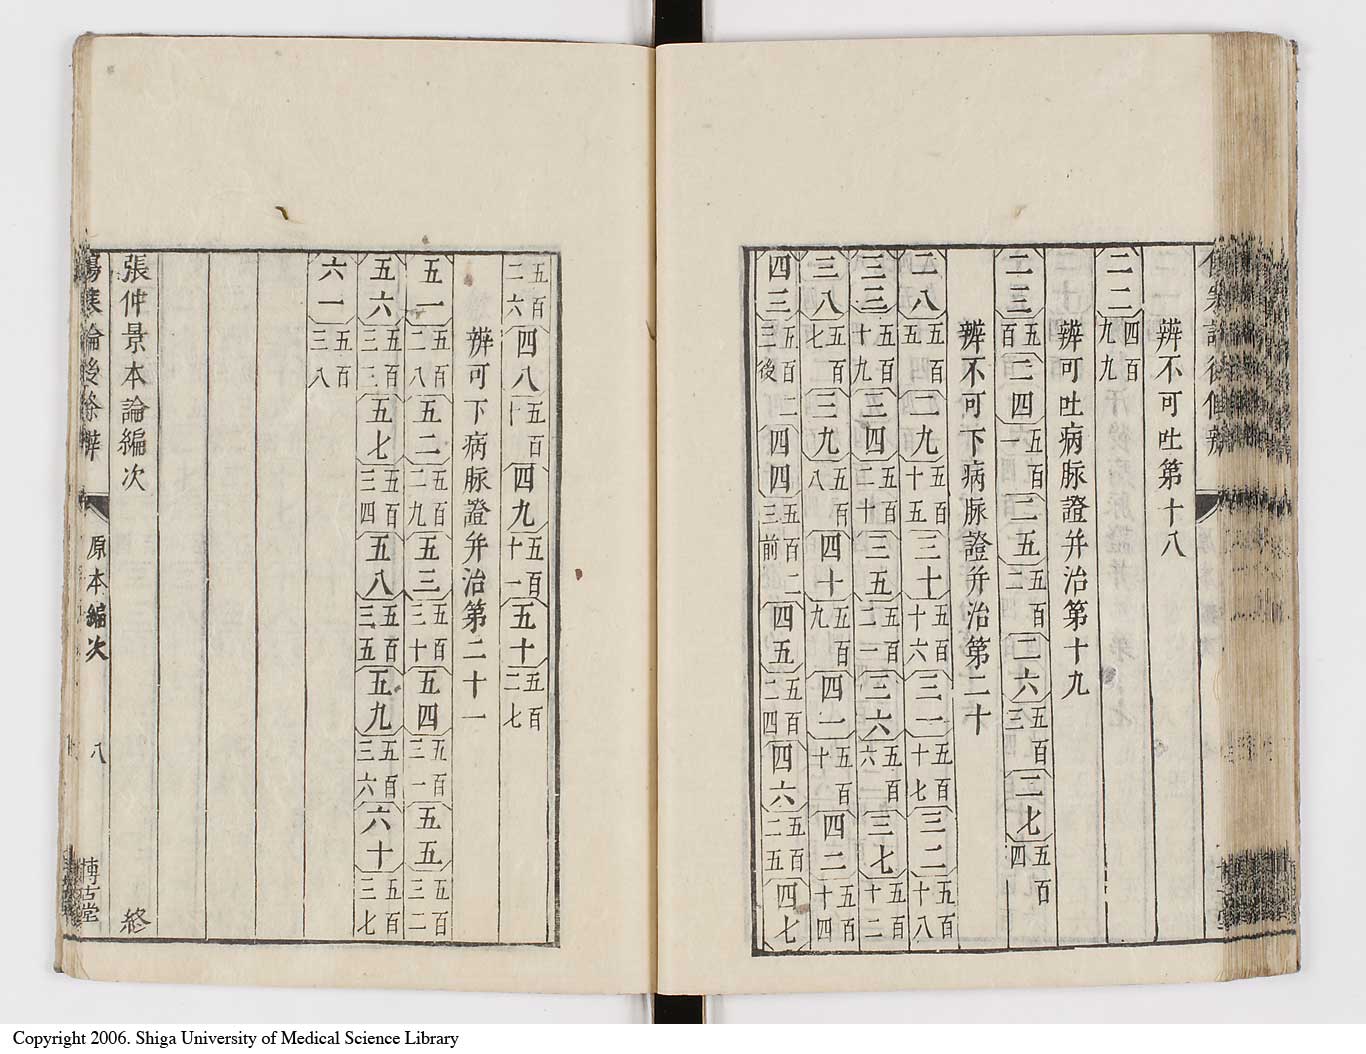 辨不可吐第十八
二二 四百九九
辨可吐病脉證并治第十九
二三 五百 二四 五百一 二五 五百二 二六 五百三 二七 五百四
辨不可下病脉證并治第二十
二八 五百五 二九 五百十五 三十 五百十六 三一 五百十七 三二 五百十八
三三 五百十九 三四 五百二十 三五 五百二一 三六 五百六 三七 五百十二
三八 五百七 三九 五百八 四十 五百九 四一 五百十 四二 五百十四
四三 五百二三後 四四 五百二三前 四五 五百二四 四六 五百二五 四七
五百二六 四八 五百 四九 五百十一 五十 五百二七
辨可下病脉證并治第二十一
五一 五百二八 五二 五百二九 五三 五百三十 五四 五百三一 五五 五百三二
五六 五百三三 五七 五百三四 五八 五百三五 五九 五百三六 六十 五百三七
六一 五百三八
張仲景本論編次 終
傷寒論後條辨 原本編次 八 博古堂
Copyright 2006. Shiga University of Medical Science Library